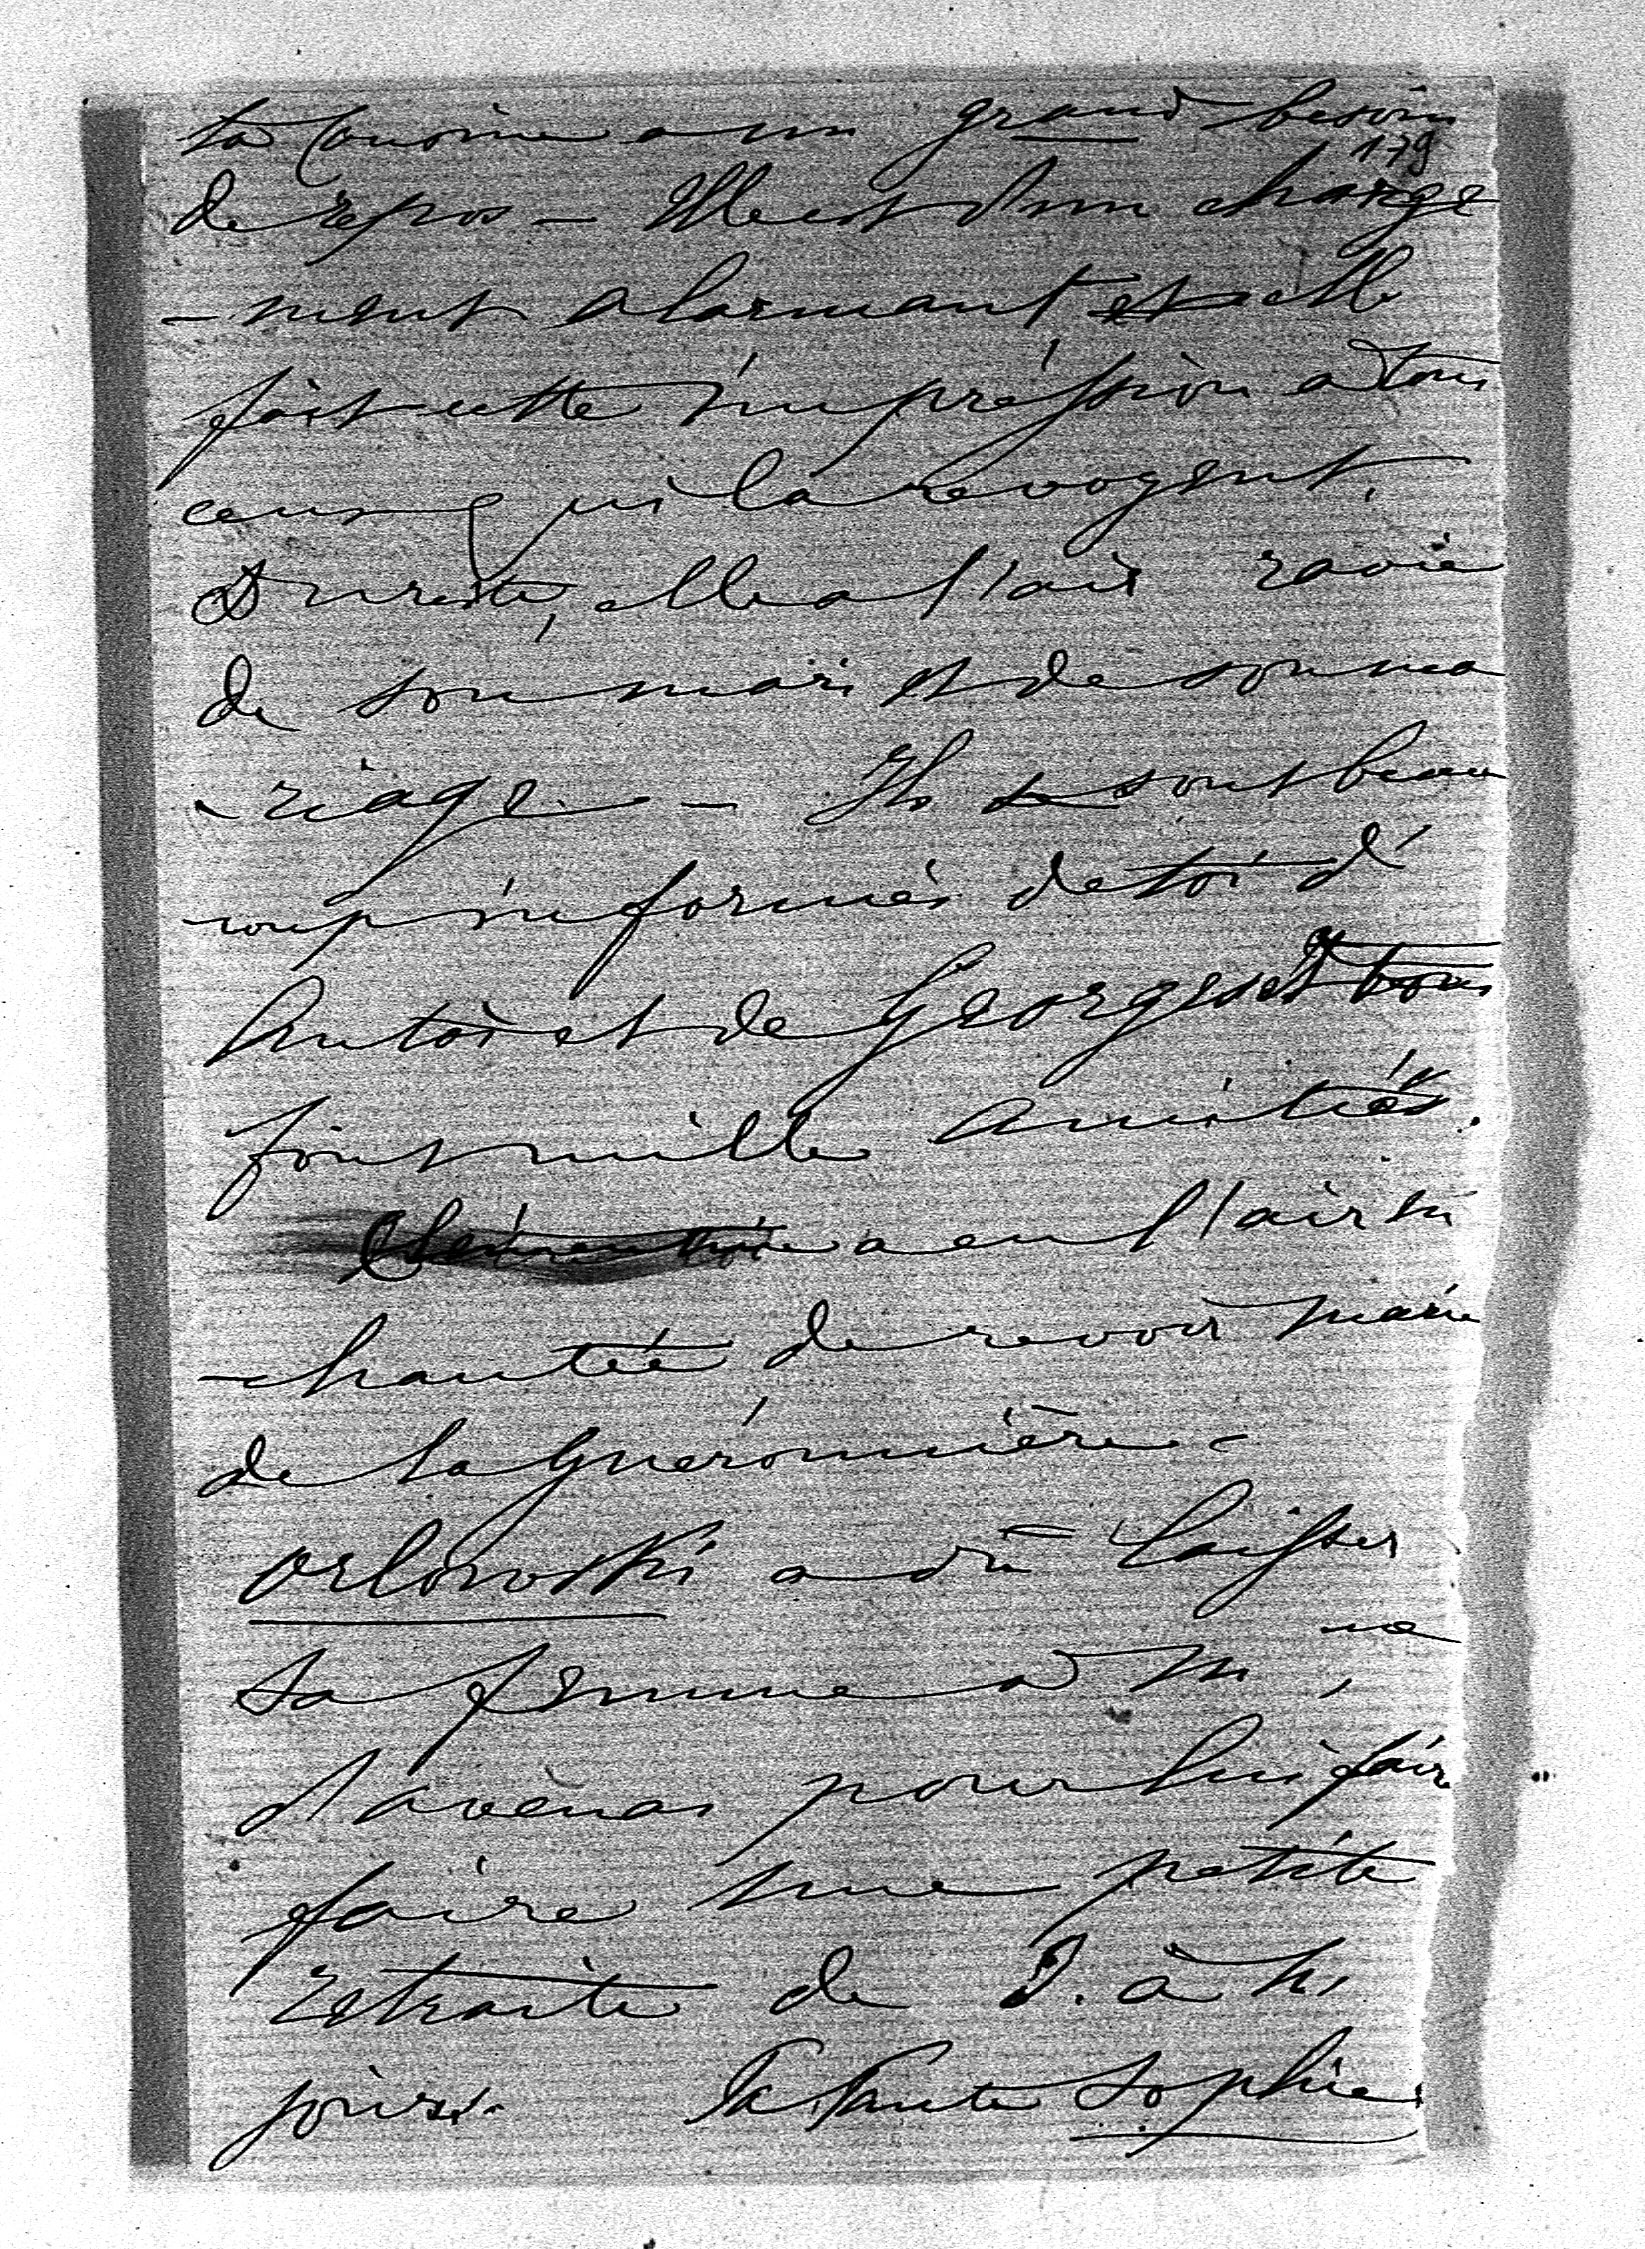 ta Cousine a un grand besoin
179
de repos – Elle est d'un change
-ment alarmant et elle
fait cette impréssion a tous
ceux qui la revoyent.
Du reste, elle a l'air ravie
de son mari et de son ma
-riage – Ils se sont beau
-coup informés de toi d'
Antoi et de Georges et tous
font mille amitiés.
Clémentine a eu l'air en
-chantée, de revoir Marie
de La Guéronnière –
Orlowski a dû laisser
sa femme a M me
d'avenas pour lui faire
faire une petite
retraite de 3. à 4.
jours. Ta Tante Sophie